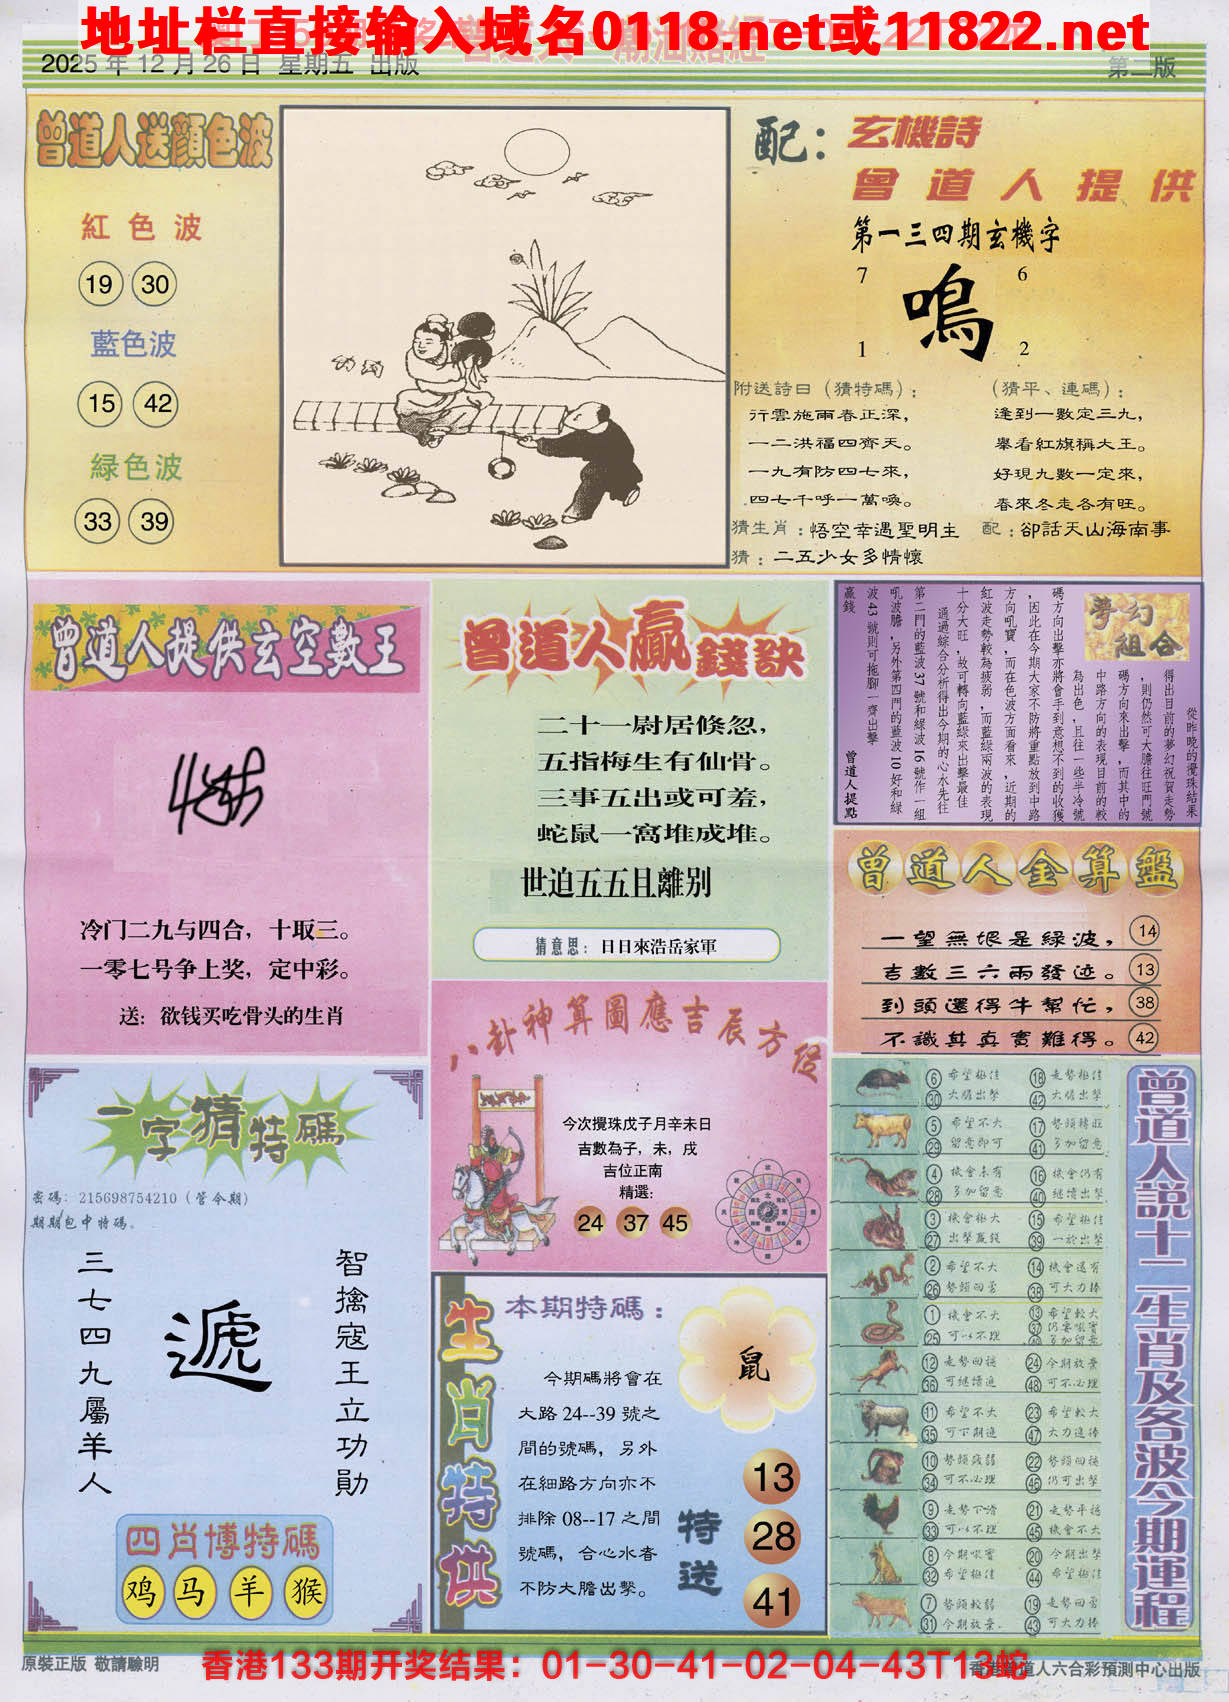 地址栏直接输入域名0118.net或11822.net
2025 年 12 月 26 日 星期五 出版
第二版
曾道人送顏色波
紅色波
19 30
藍色波
15 42
綠色波
33 39
配：玄機詩
曾道人提供
第一三四期玄機字
7 6
鳴
1 2
附送詩曰（猜特碼）：
行雲施雨春正深，
一二洪福四齊天。
一九有防四七來，
四七千呼一萬喚。
（猜平、連碼）：
逢到一數定三九，
舉看紅旗稱大王。
好現九數一定來，
春來冬走各有旺。
猜生肖：悟空幸遇聖明主
配：卻話天山海南事
猜：二五少女多情懷
曾道人提供玄空數王
冷门二九与四合，十取三。
一零七号争上奖，定中彩。
送：欲钱买吃骨头的生肖
曾道人贏錢訣
二十一尉居倏忽，
五指梅生有仙骨。
三事五出或可羞，
蛇鼠一窩堆成堆。
世迫五五且離别
猜意思：日日來浩岳家軍
夢幻組合
從昨晚的攪珠結果
得出目前的夢幻祝賀走勢
，則仍然可大膽往旺門號
碼方向來出擊，而其中的
中路方向的表現目前的較
為出色，且往一些半冷號
碼方向出擊亦將會手到意想不到的收獲
，因此在今期大家不防將重點放到中路
方向吼寶，而在色波方面看來，近期的
紅波走勢較為疲弱，而藍綠兩波的表現
十分大旺，故可轉向藍綠來出擊最佳
通過綜合分析得出今期的心水先往
第二門的藍波 37 號和綠波 16 號作一組
吼波膽，另外第四門的藍波 10 好和綠
波 43 號則可拖腳一齊出擊
贏錢
曾道人提點
曾道人金算盤
一望無垠是綠波，14
吉數三六兩發迹。13
到頭還得牛幫忙，38
不識其真實難得。42
八卦神算圖應吉辰方位
今次攪珠戊子月辛未日
吉數為子，未，戌
吉位正南
精選：
24 37 45
一字猜特碼
密碼：215698754210（管今期）
期期包中特碼。
智擒寇王立功勛
遞
三七四九屬羊人
四肖博特碼
鸡 马 羊 猴
生肖特供
本期特碼：
鼠
今期碼將會在
大路 24--39 號之
間的號碼，另外
在細路方向亦不
排除 08--17 之間
號碼，合心水者
不防大膽出擊。
特送
13
28
41
曾道人説十二生肖及各波今期運程
6 希望極佳 18 走勢極佳
30 大膽出擊 42 大膽出擊
5 希望不大 17 勢頭轉旺
29 留意即可 41 多加留意
4 機會未有 16 機會仍有
28 多加留意 40 繼續出擊
3 機會極大 15 希望極佳
27 出擊贏錢 39 一於出擊
2 希望不大 14 機會還有
26 勢頭回落 38 可大力捧
1 機會不大 13 希望較大
25 可以不理 37 仍要吼實
多加留意
12 走勢回穩 24 今期放棄
36 可繼續追 48 可不必理
11 希望不大 23 希望較大
35 可下期追 47 大力追捧
10 勢頭疲弱 22 勢頭回穩
34 可不必理 46 仍可出擊
9 走勢下滑 21 走勢平穩
33 可以不理 45 機會不大
8 今期吼實 20 今期出擊
32 希望極佳 44 希望極佳
7 勢頭較弱 19 走勢回落
31 今期放棄. 43 可大力捧
原裝正版 敬請驗明
香港133期开奖结果：01-30-41-02-04-43T13蛇
香港曾道人六合彩預測中心出版